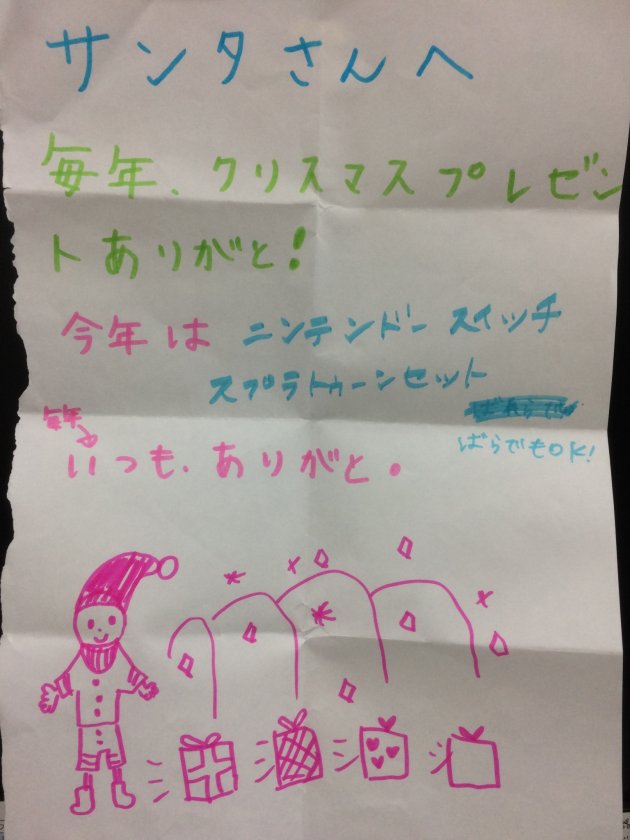 サンタさんへ
毎年、クリスマスプレゼン
トありがと!
今年は ニンテンドースイッチ
スプラトゥーンセット
ばらでもOK!
毎年
いつも、ありがと。